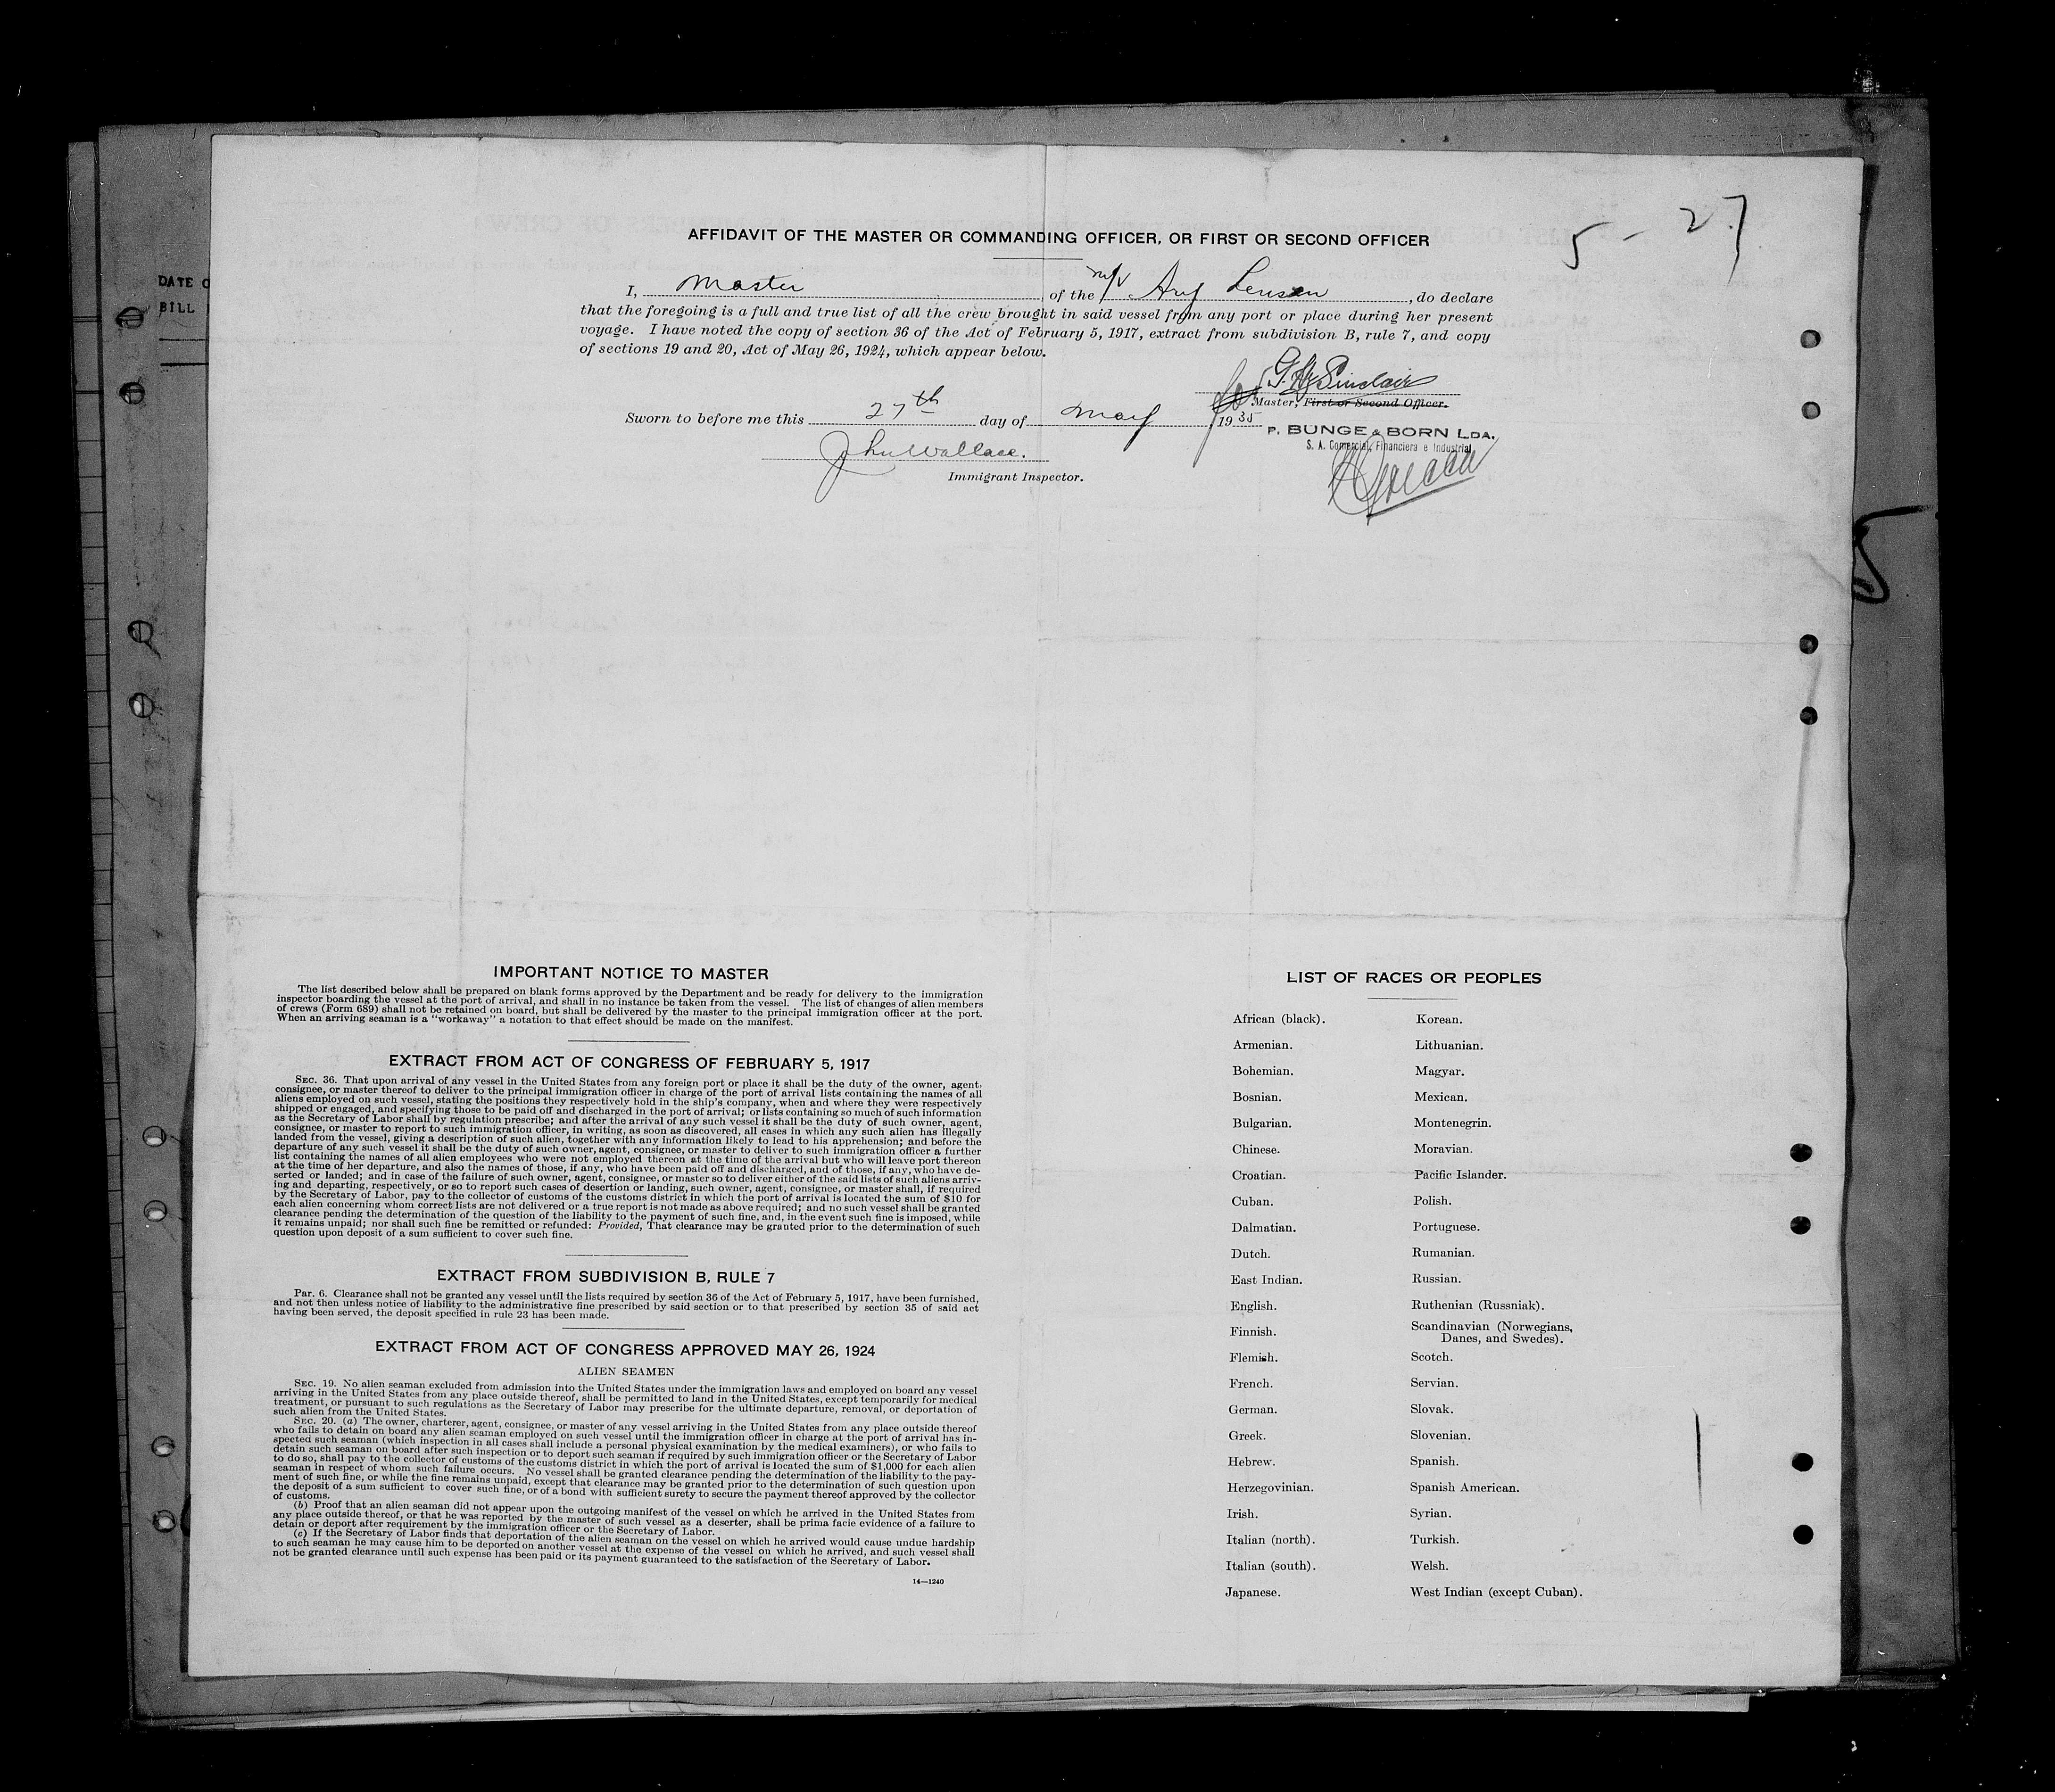 5 - 27
DATE O
BILL
AFFIDAVIT OF THE MASTER OR COMMANDING OFFICER, OR FIRST OR SECOND OFFICER
I, Master of the m/v Lensen, do declare
that the foregoing is a full and true list of all the crew brought in said vessel from any port or place during her present
voyage. I have noted the copy of section 36 of the Act of February 5, 1917, extract from subdivision B, rule 7, and copy
of sections 19 and 20, Act of May 26, 1924, which appear below.
Sinclair
Master, First or Second Officer.
Sworn to before me this 27th day of May, 1935
P. BUNGE & BORN LDA.
S. A. Comercial, Financiera e Industrial
John Wallace.
Immigrant Inspector.
5
IMPORTANT NOTICE TO MASTER
The list described below shall be prepared on blank forms approved by the Department and be ready for delivery to the immigration
inspector boarding the vessel at the port of arrival, and shall in no instance be taken from the vessel. The list of changes of alien members
of crews (Form 689) shall not be retained on board, but shall be delivered by the master to the principal immigration officer at the port.
When an arriving seaman is a "workaway" a notation to that effect should be made on the manifest.
EXTRACT FROM ACT OF CONGRESS OF FEBRUARY 5, 1917
SEC. 36. That upon arrival of any vessel in the United States from any foreign port or place it shall be the duty of the owner, agent,
consignee, or master thereof to deliver to the principal immigration officer in charge of the port of arrival lists containing the names of all
aliens employed on such vessel, stating the positions they respectively hold in the ship's company, when and where they were respectively
shipped or engaged, and specifying those to be paid off and discharged in the port of arrival; or lists containing so much of such information
as the Secretary of Labor shall by regulation prescribe; and after the arrival of any such vessel it shall be the duty of such owner, agent,
consignee, or master to report to such immigration officer, in writing, as soon as discovered, all cases in which any such alien has illegally
landed from the vessel, giving a description of such alien, together with any information likely to lead to his apprehension; and before the
departure of any such vessel it shall be the duty of such owner, agent, consignee, or master to deliver to such immigration officer a further
list containing the names of all alien employees who were not employed thereon at the time of the arrival but who will leave port thereon
at the time of her departure, and also the names of those, if any, who have been paid off and discharged, and of those, if any, who have de-
serted or landed; and in case of the failure of such owner, agent, consignee, or master so to deliver either of the said lists of such aliens arriv-
ing and departing, respectively, or so to report such cases of desertion or landing, such owner, agent, consignee, or master shall, if required
by the Secretary of Labor, pay to the collector of customs of the customs district in which the port of arrival is located the sum of $10 for
each alien concerning whom correct lists are not delivered or a true report is not made as above required; and no such vessel shall be granted
clearance pending the determination of the question of the liability to the payment of such fine, and, in the event such fine is imposed, while
it remains unpaid; nor shall such fine be remitted or refunded: Provided, That clearance may be granted prior to the determination of such
question upon deposit of a sum sufficient to cover such fine.
EXTRACT FROM SUBDIVISION B, RULE 7
Par. 6. Clearance shall not be granted any vessel until the lists required by section 36 of the Act of February 5, 1917, have been furnished,
and not then unless notice of liability to the administrative fine prescribed by said section or to that prescribed by section 35 of said act
having been served, the deposit specified in rule 23 has been made.
EXTRACT FROM ACT OF CONGRESS APPROVED MAY 26, 1924
ALIEN SEAMEN
SEC. 19. No alien seaman excluded from admission into the United States under the immigration laws and employed on board any vessel
arriving in the United States from any place outside thereof, shall be permitted to land in the United States, except temporarily for medical
treatment, or pursuant to such regulations as the Secretary of Labor may prescribe for the ultimate departure, removal, or deportation of
such alien from the United States.
SEC. 20. (a) The owner, charterer, agent, consignee, or master of any vessel arriving in the United States from any place outside thereof
who fails to detain on board any alien seaman employed on such vessel until the immigration officer in charge at the port of arrival has in-
spected such seaman (which inspection in all cases shall include a personal physical examination by the medical examiners), or who fails to
detain such seaman on board after such inspection or to deport such seaman if required by such immigration officer or the Secretary of Labor
to do so, shall pay to the collector of customs of the customs district in which the port of arrival is located the sum of $1,000 for each alien
seaman in respect of whom such failure occurs. No vessel shall be granted clearance pending the determination of the liability to the pay-
ment of such fine, or while the fine remains unpaid, except that clearance may be granted prior to the determination of such question upon
the deposit of a sum sufficient to cover such fine, or of a bond with sufficient surety to secure the payment thereof approved by the collector
of customs.
(b) Proof that an alien seaman did not appear upon the outgoing manifest of the vessel on which he arrived in the United States from
any place outside thereof, or that he was reported by the master of such vessel as a deserter, shall be prima facie evidence of a failure to
detain or deport after requirement by the immigration officer or the Secretary of Labor.
(c) If the Secretary of Labor finds that deportation of the alien seaman on the vessel on which he arrived would cause undue hardship
to such seaman he may cause him to be deported on another vessel at the expense of the vessel on which he arrived, and such vessel shall
not be granted clearance until such expense has been paid or its payment guaranteed to the satisfaction of the Secretary of Labor.
14—1240
LIST OF RACES OR PEOPLES
African (black). Korean.
Armenian. Lithuanian.
Bohemian. Magyar.
Bosnian. Mexican.
Bulgarian. Montenegrin.
Chinese. Moravian.
Croatian. Pacific Islander.
Cuban. Polish.
Dalmatian. Portuguese.
Dutch. Rumanian.
East Indian. Russian.
English. Ruthenian (Russniak).
Finnish. Scandinavian (Norwegians,
Danes, and Swedes).
Flemish. Scotch.
French. Servian.
German. Slovak.
Greek. Slovenian.
Hebrew. Spanish.
Herzegovinian. Spanish American.
Irish. Syrian.
Italian (north). Turkish.
Italian (south). Welsh.
Japanese. West Indian (except Cuban).